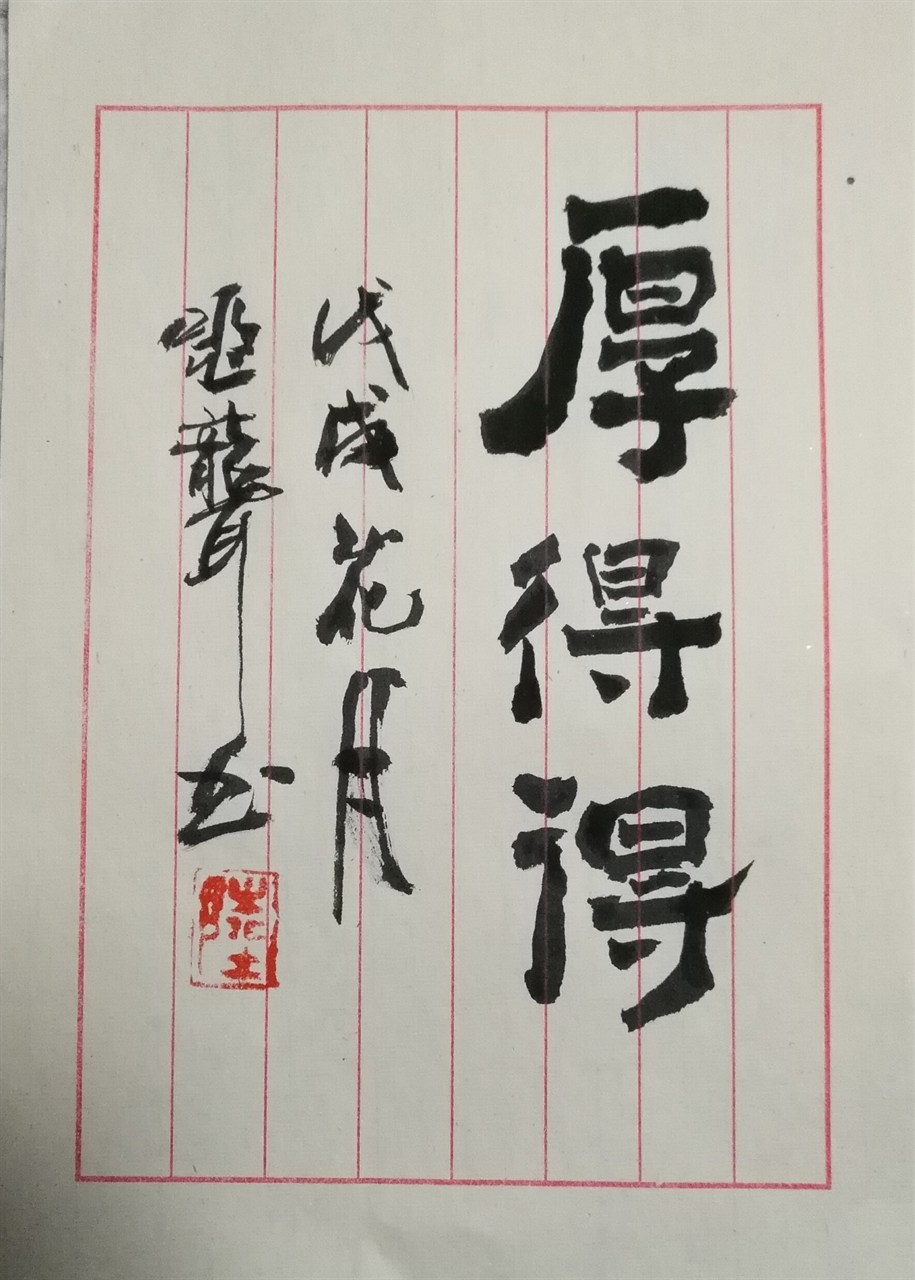 厚得得
戊戌花月
聋